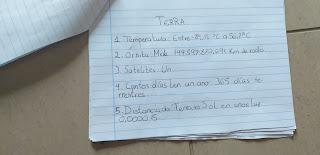 TERRA
1. Temperatura: Entre -89,15 °C a 56,7°C
2. Orbita: Mide 149.597.870,691 Km de radio
3. Satelites: Un
4. Cantos días ten un ano: 365 días te
rrestres
5. Distancia da Terra ao Sol en anos luz
0,000015